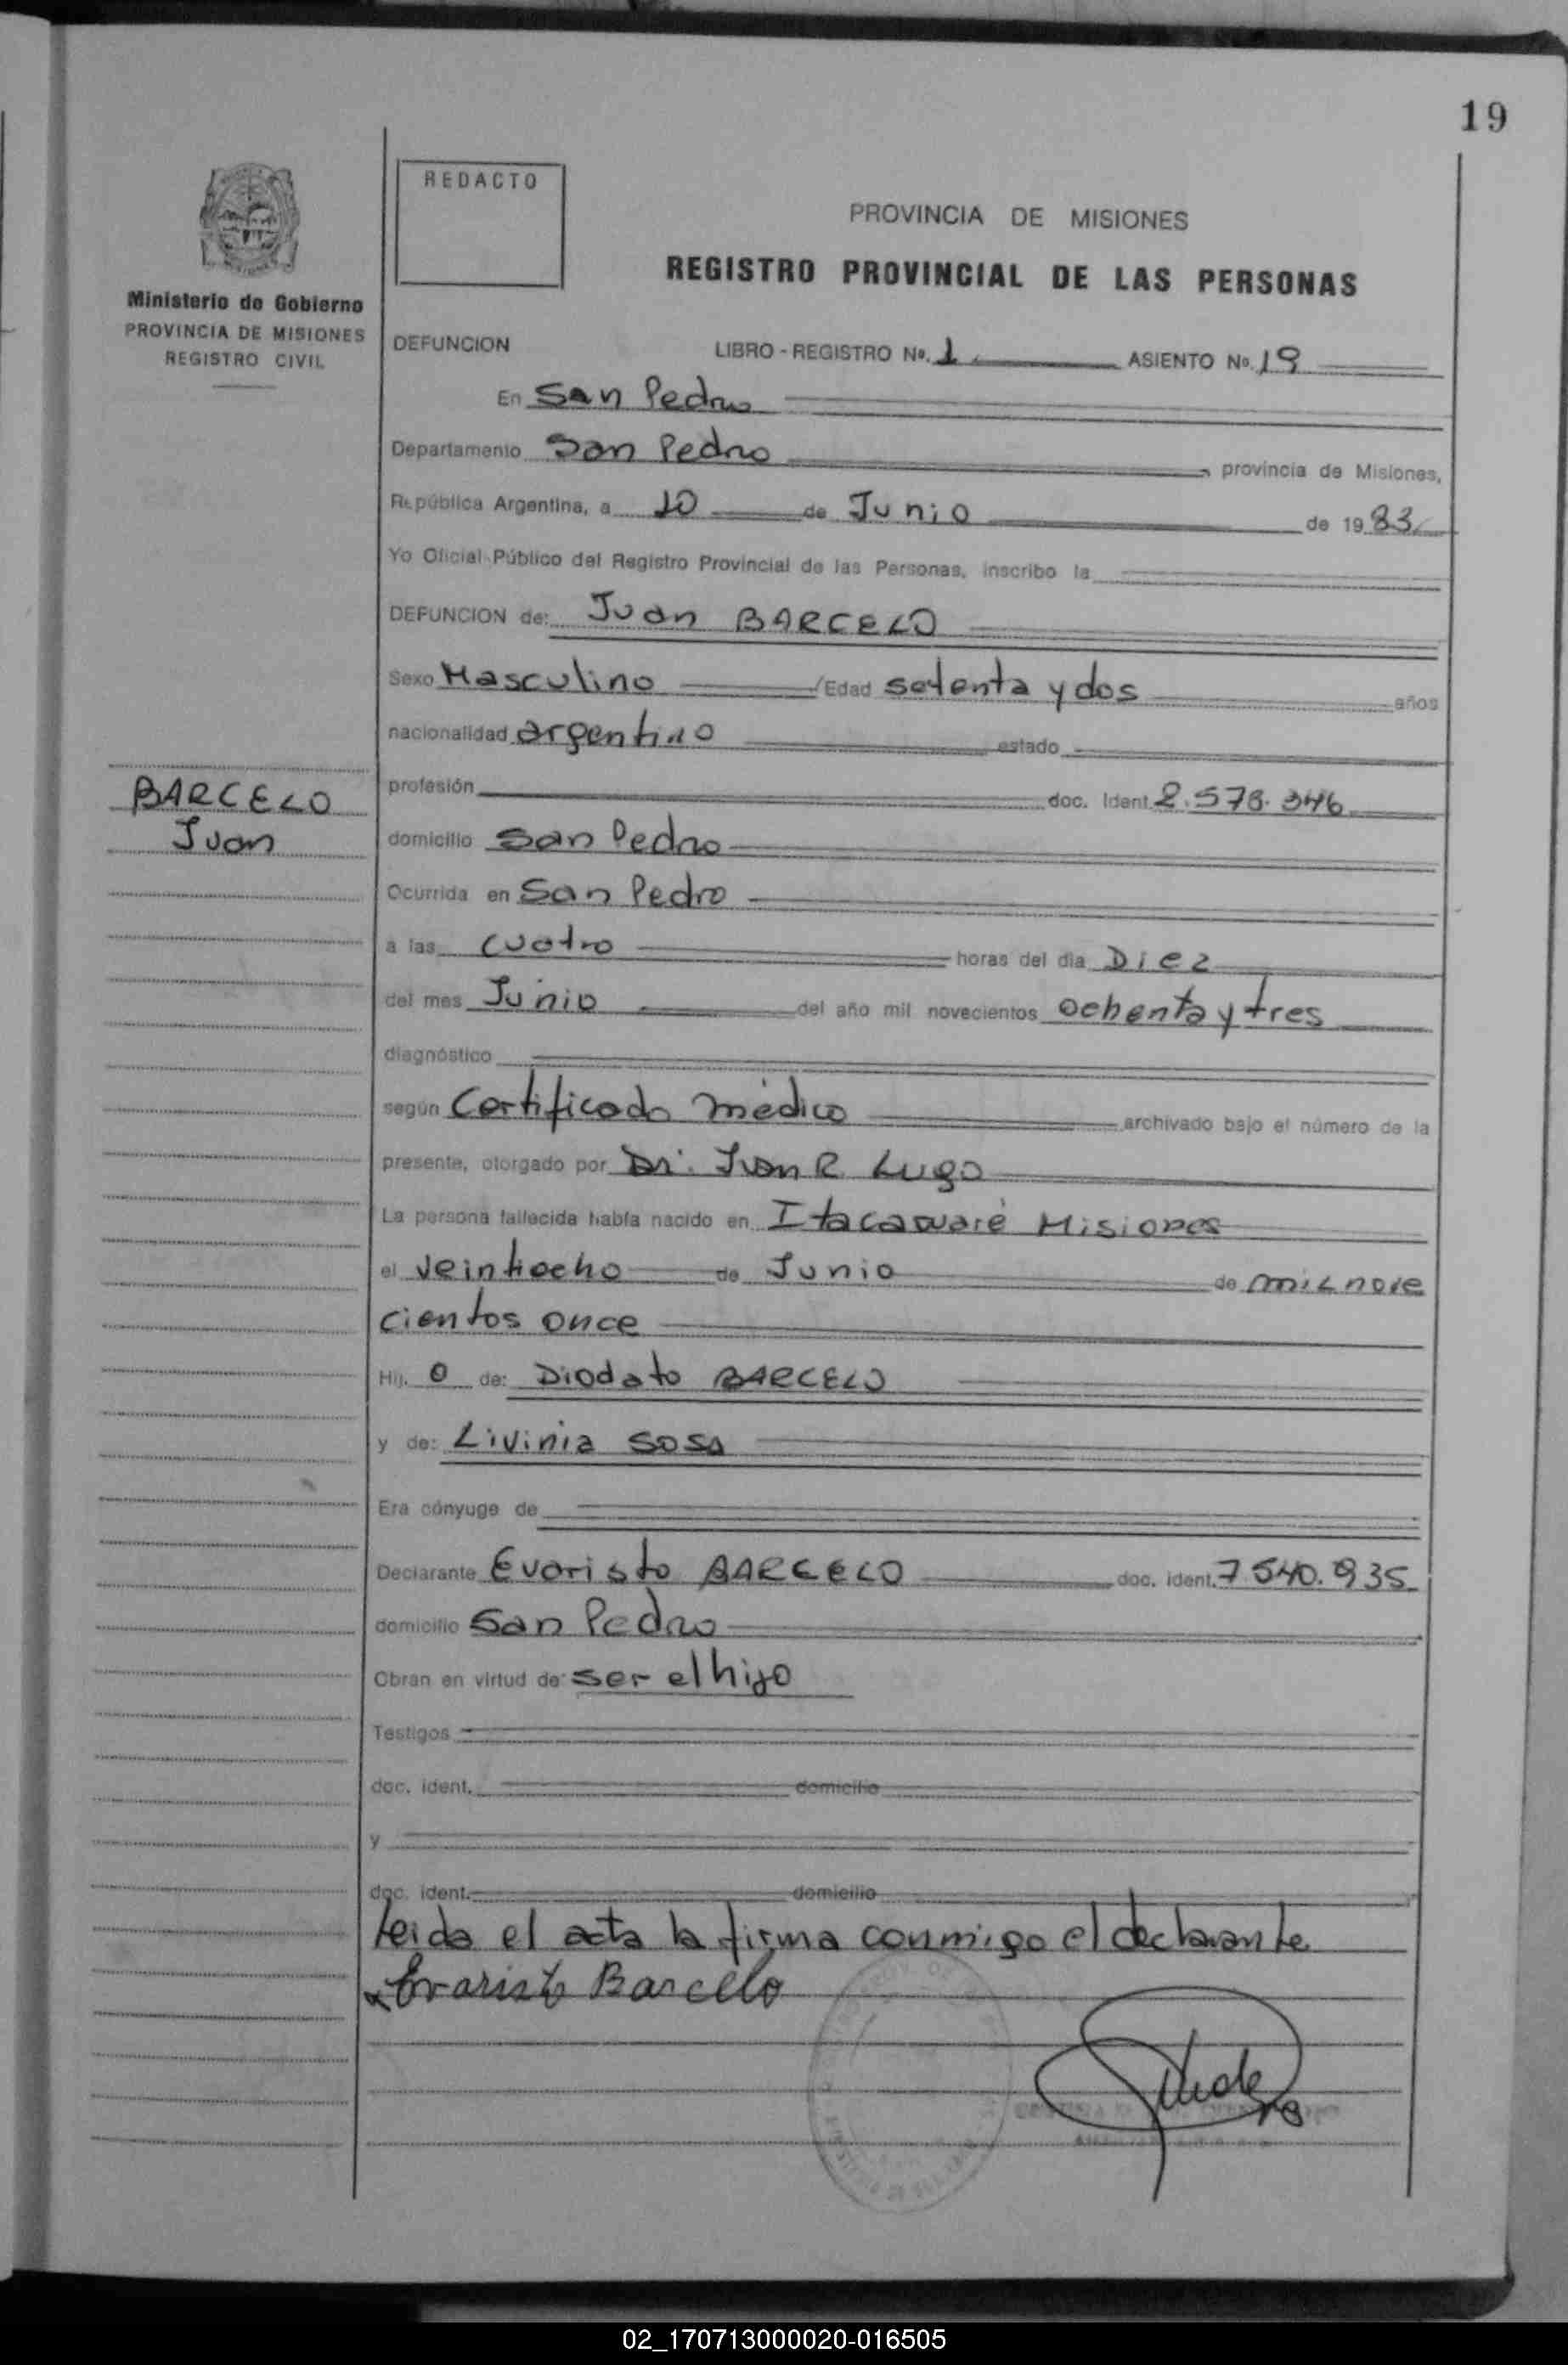 19
REDACTO
PROVINCIA DE MISIONES
REGISTRO PROVINCIAL DE LAS PERSONAS
Ministerio de Gobierno
PROVINCIA DE MISIONES
REGISTRO CIVIL
DEFUNCION LIBRO - REGISTRO No. 1 ASIENTO No. 19
En San Pedro
Departamento San Pedro, provincia de Misiones,
República Argentina, a 10 de Junio de 19 83
Yo Oficial Público del Registro Provincial de las Personas, inscribo la
DEFUNCION de: Juan BARCELO
Sexo Masculino / Edad setenta y dos años
nacionalidad argentino estado
BARCELO
Juan
profesión doc. Ident. 2.578.346
domicilio San Pedro
Ocurrida en San Pedro
a las cuatro horas del día Diez
del mes Junio del año mil novecientos ochenta y tres
diagnóstico
según Certificado médico archivado bajo el número de la
presente, otorgado por Dr. Juan R. Lugo
La persona fallecida había nacido en Itacaruaré Misiones
el veintiocho de Junio de mil nove
cientos once
Hij. o de: Diodato BARCELO
y de: Livinia SOSA
Era cónyuge de
Declarante Evaristo BARCELO doc. ident. 7 540.935
domicilio San Pedro
Obran en virtud de ser el hijo
Testigos
doc. ident. domicilio
y
doc. ident. domicilio
Leida el acta la firma conmigo el declarante
x Evaristo Barcelo
02_170713000020-016505